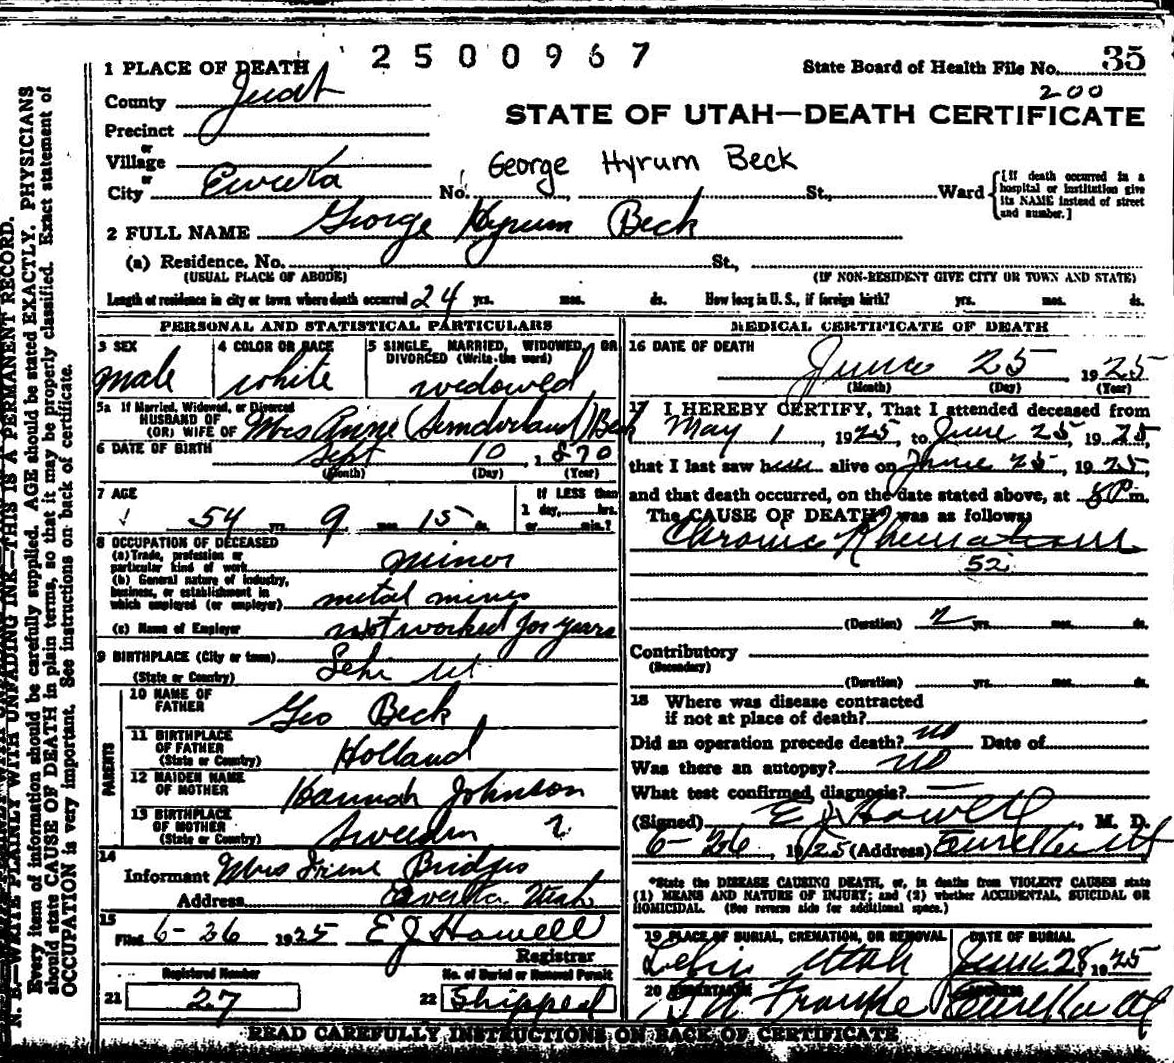 2500967
1 PLACE OF DEATH
State Board of Health File No. 35
200
County Juab
STATE OF UTAH—DEATH CERTIFICATE
Precinct
or
Village
George Hyrum Beck
or
City Eureka No. St., Ward
[If death occurred in a hospital or institution give its NAME instead of street and number.]
2 FULL NAME George Hyrum Beck
(a) Residence, No. St.,
(USUAL PLACE OF ABODE) (IF NON-RESIDENT GIVE CITY OR TOWN AND STATE)
Length of residence in city or town where death occurred 24 yrs. mos. ds. How long in U. S., if foreign birth? yrs. mos. ds.
PERSONAL AND STATISTICAL PARTICULARS
3 SEX
male
4 COLOR OR RACE
white
5 SINGLE, MARRIED, WIDOWED, OR DIVORCED (Write the word)
widowed
5a If Married, Widowed, or Divorced
HUSBAND OF
(OR) WIFE OF Mrs Anne (Sunderland) Beck
6 DATE OF BIRTH Sept 10, 1870
(Month) (Day) (Year)
7 AGE
54 yrs 9 mos. 15 ds.
If LESS than
1 day, hrs.
or min.?
8 OCCUPATION OF DECEASED
(a) Trade, profession or
particular kind of work miner
(b) General nature of industry,
business, or establishment in
which employed (or employer) metal mines
(c) Name of Employer not worked for years
9 BIRTHPLACE (City or town)
(State or Country) Lehi Ut
PARENTS
10 NAME OF
FATHER Geo Beck
11 BIRTHPLACE
OF FATHER
(State or Country) Holland
12 MAIDEN NAME
OF MOTHER Hannah Johnson
13 BIRTHPLACE
OF MOTHER
(State or Country) Sweeden ?
14
Informant Mrs Irene Bridges
Address Eureka Utah
15
Filed 6-26 1925 E J Howell
Registrar
Registered Number
21 27
No. of Burial or Removal Permit
22 Shipped
MEDICAL CERTIFICATE OF DEATH
16 DATE OF DEATH
June 25 1925
(Month) (Day) (Year)
17 I HEREBY CERTIFY, That I attended deceased from
May 1, 1925, to June 25, 1925,
that I last saw h alive on June 25, 1925,
and that death occurred, on the date stated above, at 8 P m.
The CAUSE OF DEATH* was as follows:
Chronic Rheumatism
52
(Duration) 2 yrs. mos. ds.
Contributory
(Secondary)
(Duration) yrs. mos. ds.
18 Where was disease contracted
if not at place of death?
Did an operation precede death? no Date of
Was there an autopsy? no
What test confirmed diagnosis? —
(Signed) E J Howell, M. D.
6-26, 1925 (Address) Eureka Ut
*State the DISEASE CAUSING DEATH, or, in deaths from VIOLENT CAUSES state
(1) MEANS AND NATURE OF INJURY; and (2) whether ACCIDENTAL, SUICIDAL OR
HOMICIDAL. (See reverse side for additional space.)
19 PLACE OF BURIAL, CREMATION, OR REMOVAL
Lehi Utah
DATE OF BURIAL
June 28 1925
20 UNDERTAKER
Franke
ADDRESS
Eureka Ut
READ CAREFULLY INSTRUCTIONS ON BACK OF CERTIFICATE
N. B.—WRITE PLAINLY WITH UNFADING INK—THIS IS A PERMANENT RECORD.
Every item of information should be carefully supplied. AGE should be stated EXACTLY. PHYSICIANS
should state CAUSE OF DEATH in plain terms, so that it may be properly classified. Exact statement of
OCCUPATION is very important. See instructions on back of certificate.